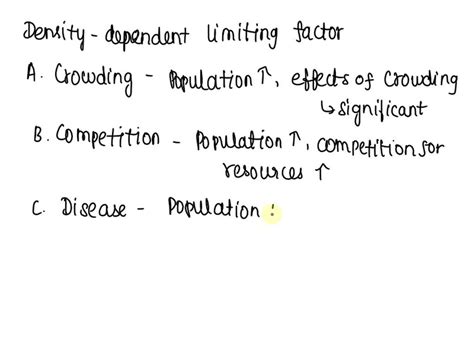 Density - dependent limiting factor
A. Crowding - Population ↑, effects of crowding
↳ significant
B. Competition - Population ↑, competition for
resources ↑
C. Disease - Population